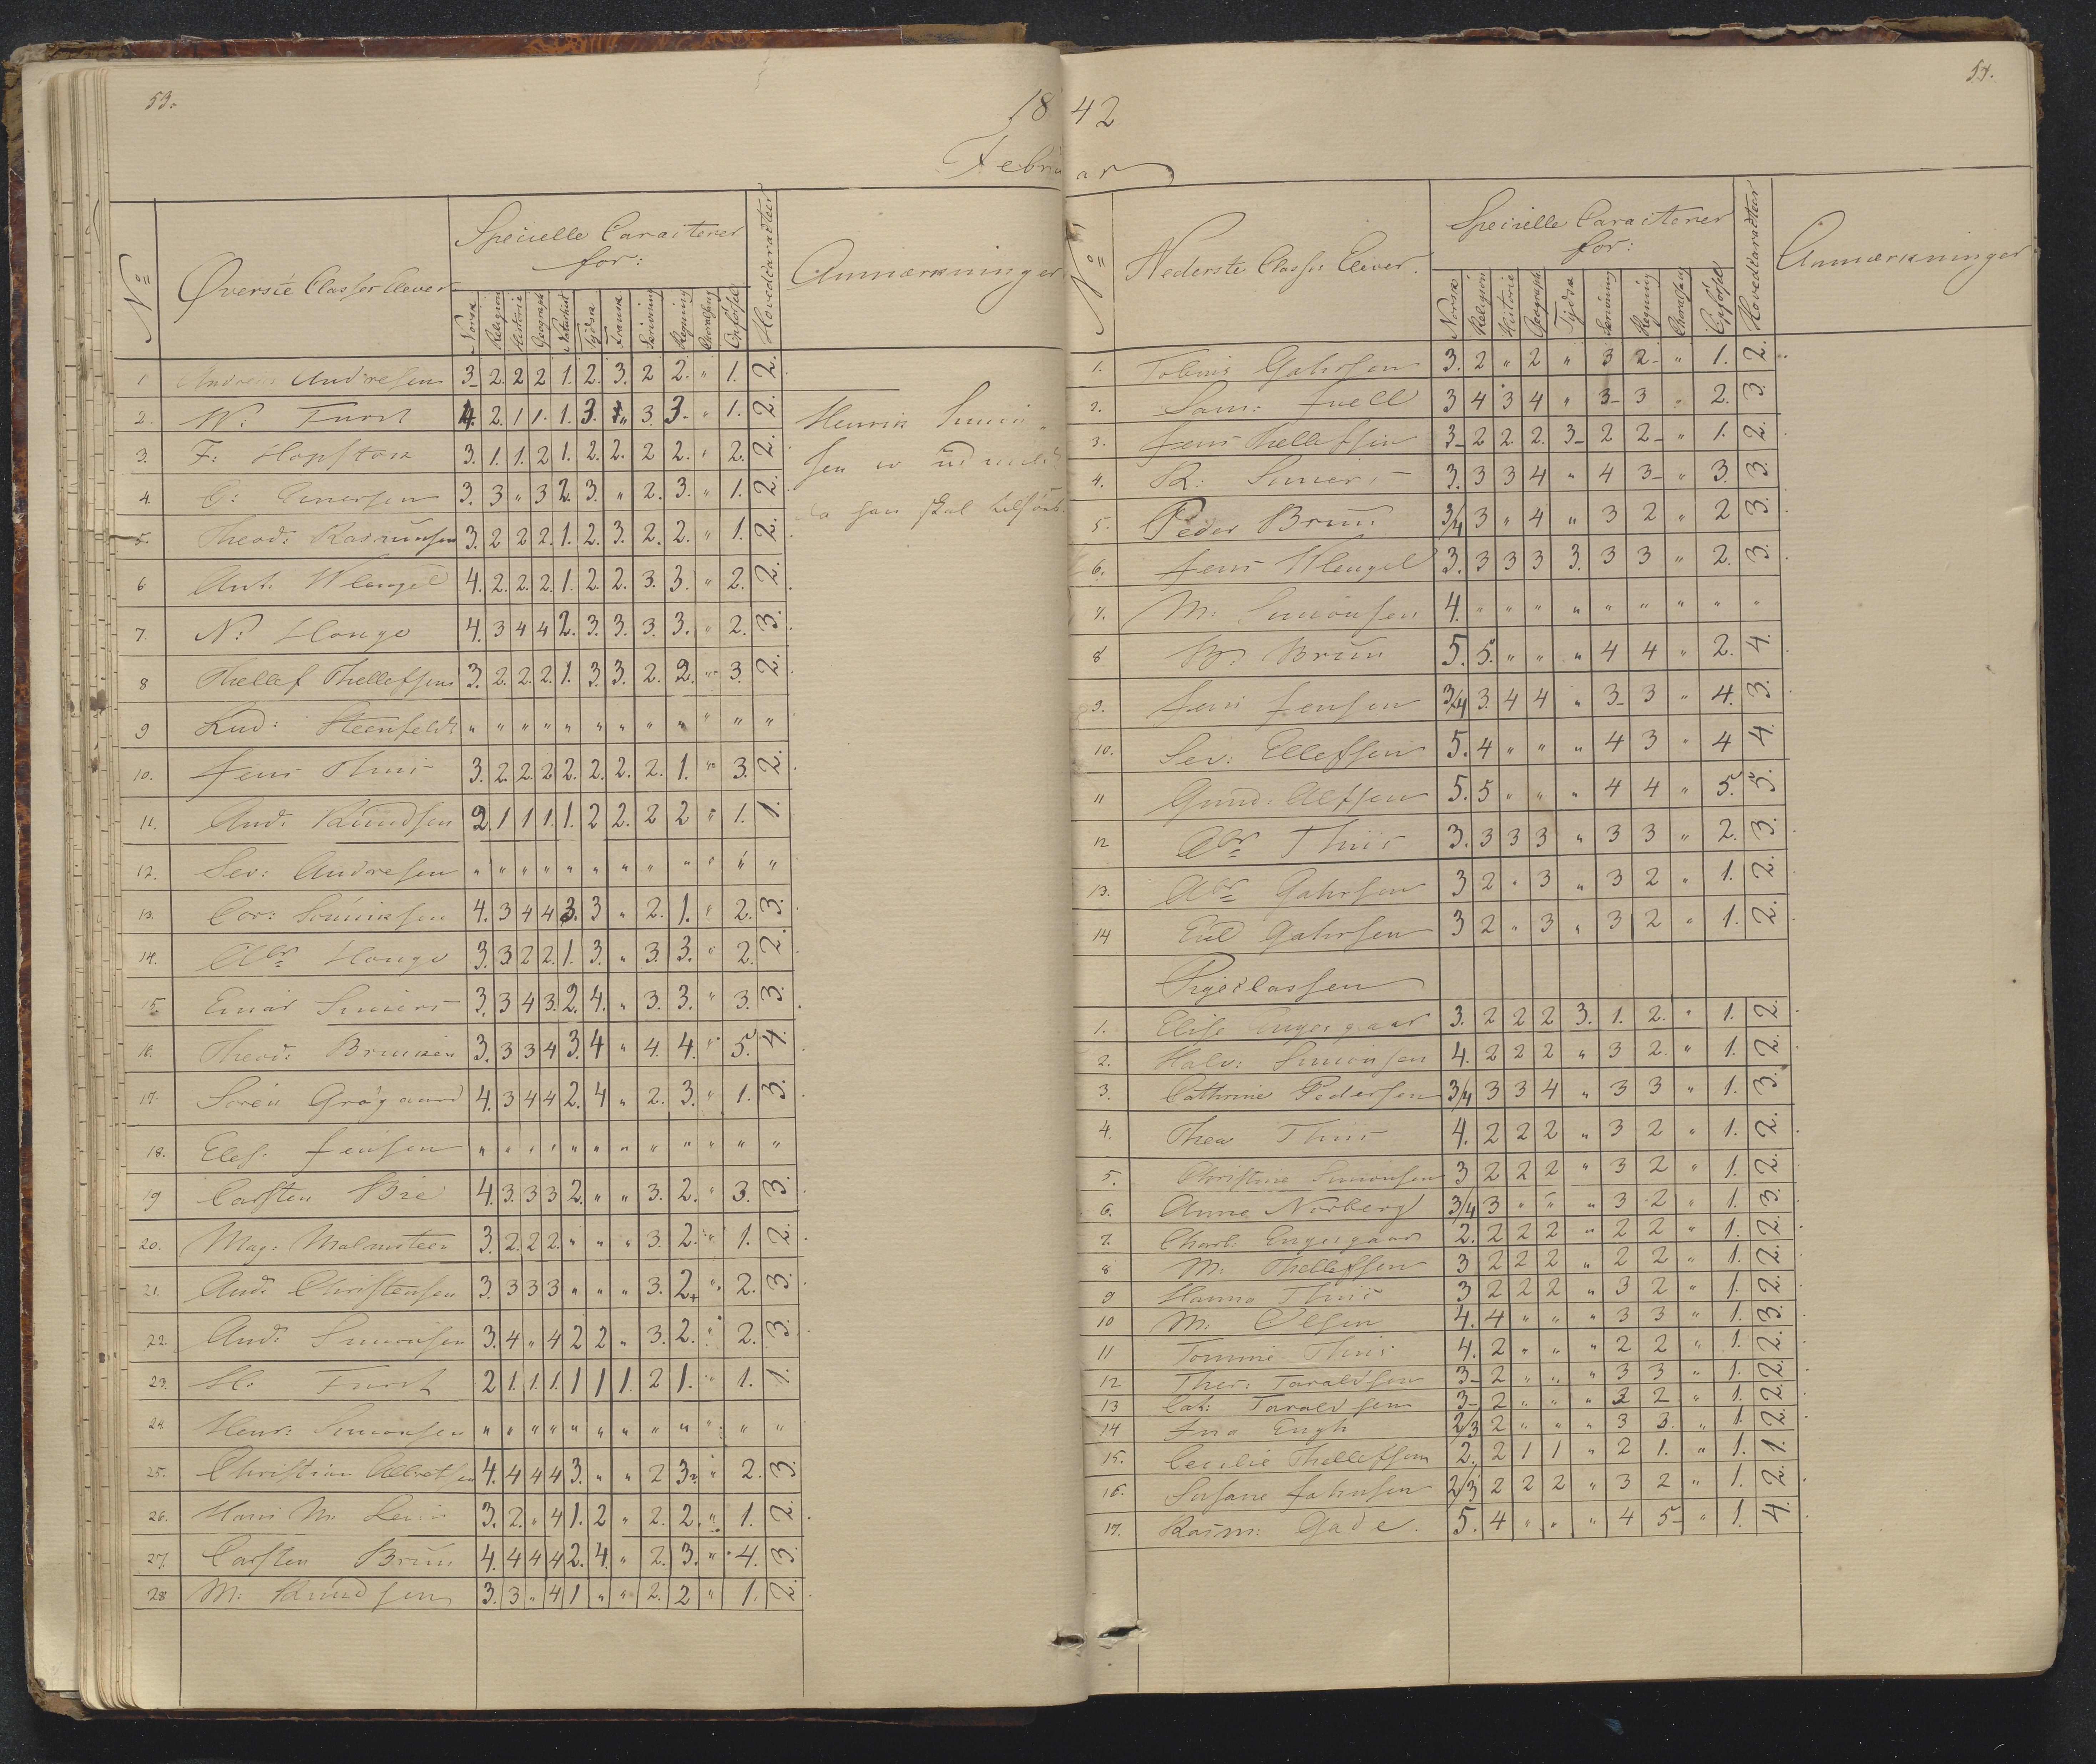 53.
1842
Februar
No
Øverste Classes Elever
Specielle Caracterer
for:
Norsk Religion Historie Geograph Naturhist Tydsk Fransk Skrivning Regning Choralsang Opførsel
Hovedcaracteer
Anmærkninger
1 Andreas Andresen 3 2. 2 2 1. 2. 3. 2 2. " 1. 2.
2. N: Furst 4. 2. 1 1. 1. 3. " 3. 3. " 1. 2.
3. F: Hopstock 3. 1. 1. 2 1. 2. 2. 2 2. " 2. 2.
4. 3. 3 " 3 2. 3. " 2. 3. " 1. 2.
5. Theod: Rasmussen 3. 2 2 2. 1. 2. 3. 2. 2. " 1. 2.
6 Ant. Klengel 4. 2. 2. 2. 1. 2. 2. 3. 3. " 2. 2.
7. N: Houge 4. 3 4 4 2. 3. 3. 3. 3. " 2. 3.
8 Thellef Thellefsen 3. 2. 2. 2. 1. 3. 3. 2. 2. " 3. 2.
9 Lud: Steenfeldt " " " " " " " " " " " "
10. Jens Thiis 3. 2. 2. 2 2. 2. 2. 2. 1. " 3. 2.
11. And: Knudsen 2. 1 1 1. 1. 2 2. 2 2 " 1. 1.
12. Sev: Andresen " " " " " " " " " " " "
13. Cor: 4. 3 4 4 3. 3 " 2. 1. " 2. 3.
14. Abr Houge 3. 3 2 2. 1. 3. " 3. 3. " 2. 2.
15. Einar 3. 3 4 3. 2. 4. " 3. 3. " 3. 3.
16. Theod: 3. 3 3 4 3. 4 " 4. 4. " 5. 4.
17. Søren Grøgaard 4. 3 4 4 2. 4 " 2. 3. " 1. 3.
18. Elef. Jensen " " " " " " " " " " " "
19 Carsten Bie 4. 3. 3 3 2. " " 3. 2. " 3. 3.
20. Mag: Malmsteen 3. 2. 2 2. " " " 3. 2. " 1. 2.
21. And: Christensen 3. 3 3 3 " " " 3. 2. " 2. 3.
22. And: Simonsen 3. 4 " 4 2 2 " 3. 2. " 2. 3.
23. H: Furst 2 1. 1. 1. 1 1 1. 2 1. " 1. 1.
24 Henr: Simonsen " " " " " " " " " " " "
25. Christian Albretsen 4. 4 4 4 3. " " 2 3 " 2. 3.
26. Hans M. 3. 2. " 4 1. 2 " 2. 2. " 1. 2.
27. Carsten Bruun 4. 4 4 4 2. 4. " 2. 3. " 4. 3.
28 M: Knudsen 3. 3 " 4 1 " " 2. 2 " 1. 2.
Henrik Simon
sen er udmeldt
da han skal tilsøes.
54.
No
Nederste Classes Elever.
Specielle Caracterer
for:
Norsk Religion Historie Geograph Tydsk Skrivning Regning Choralsang Opførsel
Hovedcaracteer
Anmærkninger
1. Tobias Gahrsen 3. 2 " 2 " 3 2 " 1. 2.
2. Sam: Juell 3 4 3 4 " 3 3 " 2. 3.
3. Jens Thellefsen 3 2 2 2. 3 2 2 " 1. 2.
4. R: 3. 3 3 4 " 4 3 " 3. 3.
5. Peder Bruun 3/4 3 " 4 " 3 2 " 2 3.
6. Jens Klengel 3. 3 3 3 3. 3 3 " 2. 3.
7. M: Simonsen 4. " " " " " " " " "
8 Bruun 5. 5. " " " 4 4 " 2. 4.
9. Jens Jensen 3/4 3. 4 4 " 3 3 " 4. 3.
10. Sev: Ellefsen 5. 4 " " " 4 3 " 4 4.
11 Gund: Alefsen 5. 5 " " " 4 4 " 5. 5.
12 Abr Thiis 3. 3 3 3 " 3 3 " 2. 3.
13. Abr Gahrsen 3 2 " 3 " 3 2 " 1. 2.
14 Gahrsen 3 2 " 3 " 3 2 " 1. 2.
Pigeclassen
1. Elise Engesgaar 3. 2 2 2 3. 1. 2. " 1. 2.
2. Halv: Simonsen 4. 2 2 2 " 3 2. " 1. 2.
3. Cathrine Pedersen 3/4 3 3 4 " 3 3 " 1. 3.
4. Thea Thiis 4. 2 2 2 " 3 2 " 1. 2.
5. Christine Simonsen 3 2 2 2 " 3 2 " 1. 2.
6. Anne Norberg 3/4 3 " " " 3 2 " 1. 3.
7. Charl: Engesgaar 2. 2 2 2 " 2 2 " 1. 2.
8 M: Thellefsen 3 2 2 2 " 2 2 " 1. 2.
9 Hanna Thiis 3 2 2 2 " 3 2 " 1. 2.
10 M: Olsen 4. 4 " " " 3 3 " 1. 3.
11 Tomine Thiis 4. 2 " " " 2 2 " 1. 2.
12 Ther: Taraldsen 3 2 " " " 3 3 " 1. 2.
13 Cat: Taraldsen 3 2 " " " 3 2 " 1. 2.
14 Ina Eugh 2/3 2 " " " 3 3. " 1. 2.
15. Cecilie Thellefsen 2. 2 1 1 " 2 1. " 1. 1.
16. Susane Jahnsen 2/3 2 2 2 " 3 2 " 1. 2.
17. Rasm: Gade. 5. 4 " " " 4 5 " 1. 4.